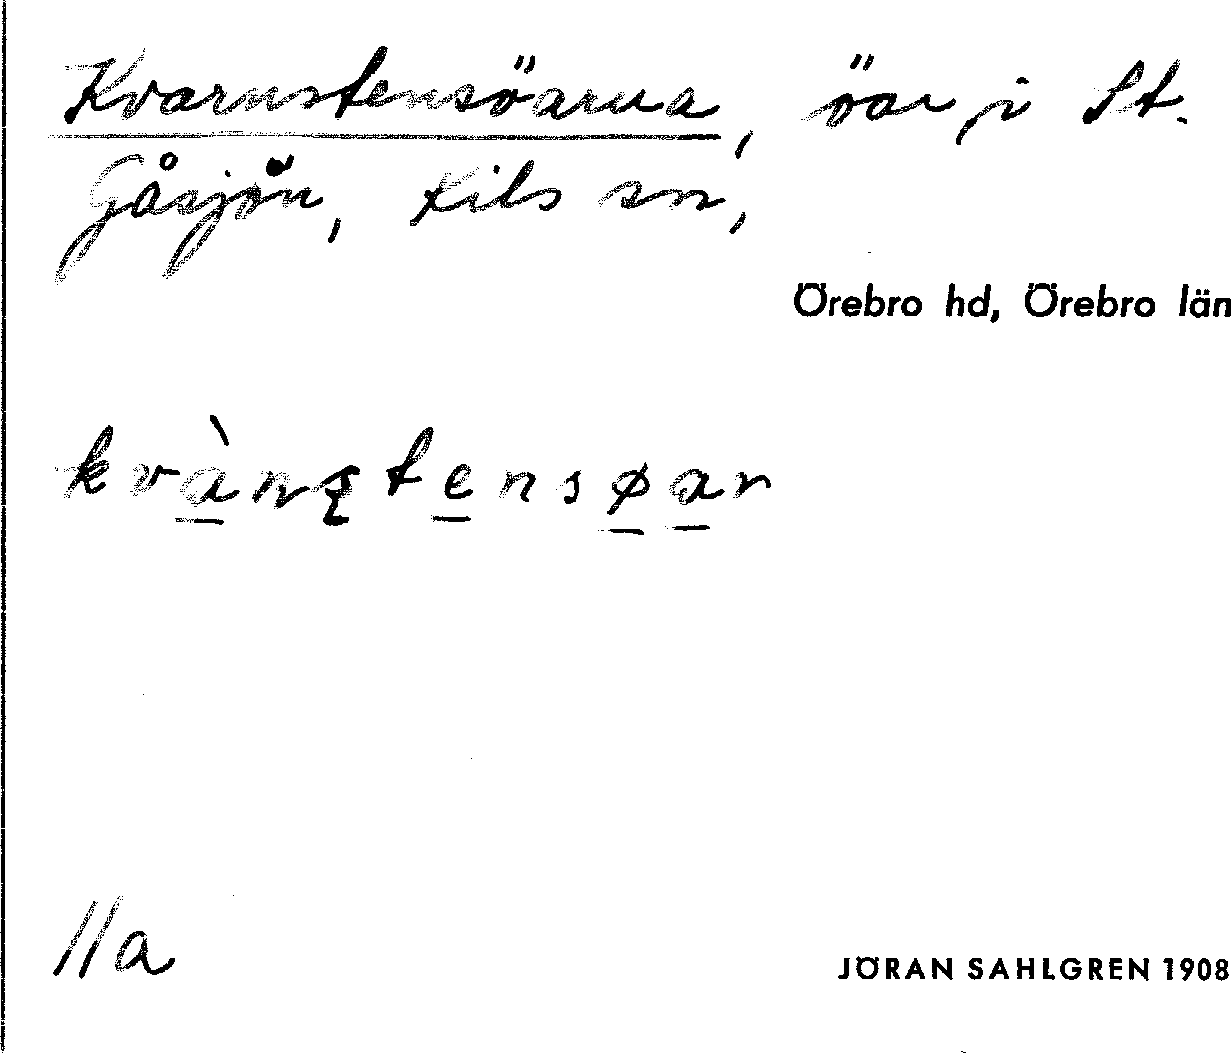 Kvarnstensöarna, öar i St.
Gåsjön, Kils sn,
Örebro hd, Örebro län
11a
JÖRAN SAHLGREN 1908